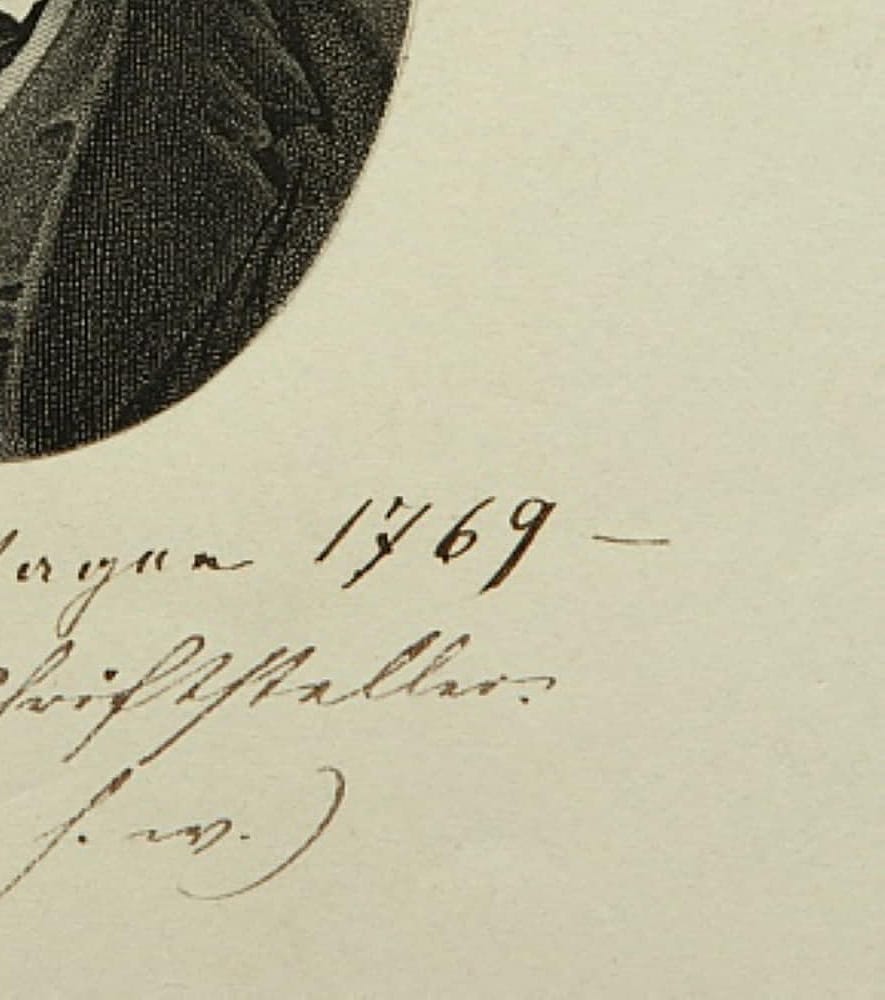 hagen 1769 —
chriftsteller.
f. w.)